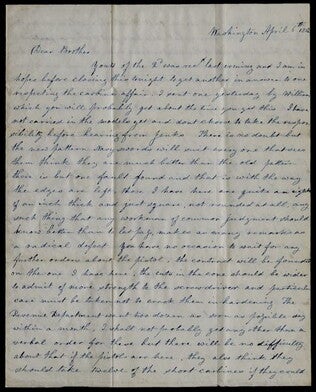 Washington April 6th
Dear Brother
Yours of the 2d was recd last evening and I am in
hopes before closing this tonight to get another in answer to one
respecting the carbine affair I sent one yesterday by William
which you will probably get about the time you get this I have
not carried in the models yet and dont choose to take the respon
sibility before hearing from There is no doubt but
the new pattern Navy sword will suit every one that sees
them think they are much better than the old pattern
there is but one fault found and that is with the way
the edges are left those I have here are quite an eighth
of an inch thick and just square, not rounded at all, any
such thing that any workman of common judgment should
know better than to let pass, makes as many remarks as
a radical defect You have no occasion to wait for any
further orders about the pistol, the contract will be founded
on the one I have here, the cuts in the cone should be wider
to admit of more strength to the screwdriver and particular
care must be taken not to crook them in hardening The
Revenue Department want two dozen as soon as possible say
within a month, I shall not probably get any other than a
verbal order for those but there will be no difficulty
about that if the pistols are here, they also think they
should take twelve of the short carbines if they could